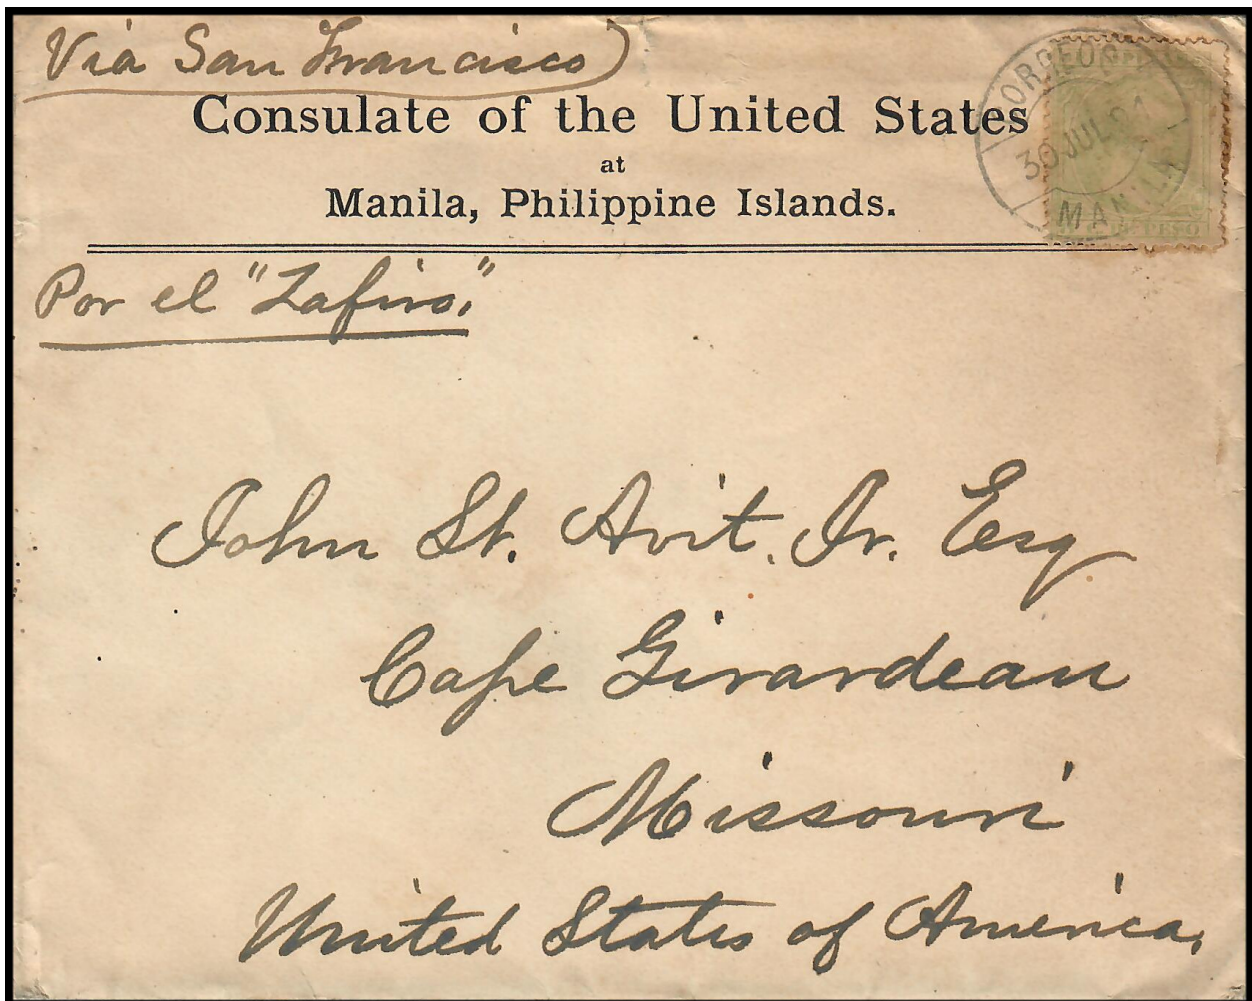 Via San Francisco
Consulate of the United States
at
Manila, Philippine Islands.
CORREOS
30 JUL
MANILA
PESO
Por el "Zafiro."
John St. Avit. Jr. Esq
Cape Girardeau
Missouri
United States of America.